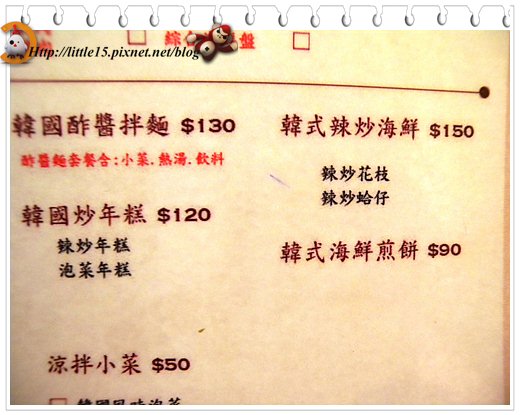 Http://little15.pixnet.net/blog
盤
韓國酢醬拌麵 $130
酢醬麵套餐含:小菜.熱湯.飲料
韓國炒年糕 $120
辣炒年糕
泡菜年糕
涼拌小菜 $50
韓國風味泡菜
韓式辣炒海鮮 $150
辣炒花枝
辣炒蛤仔
韓式海鮮煎餅 $90